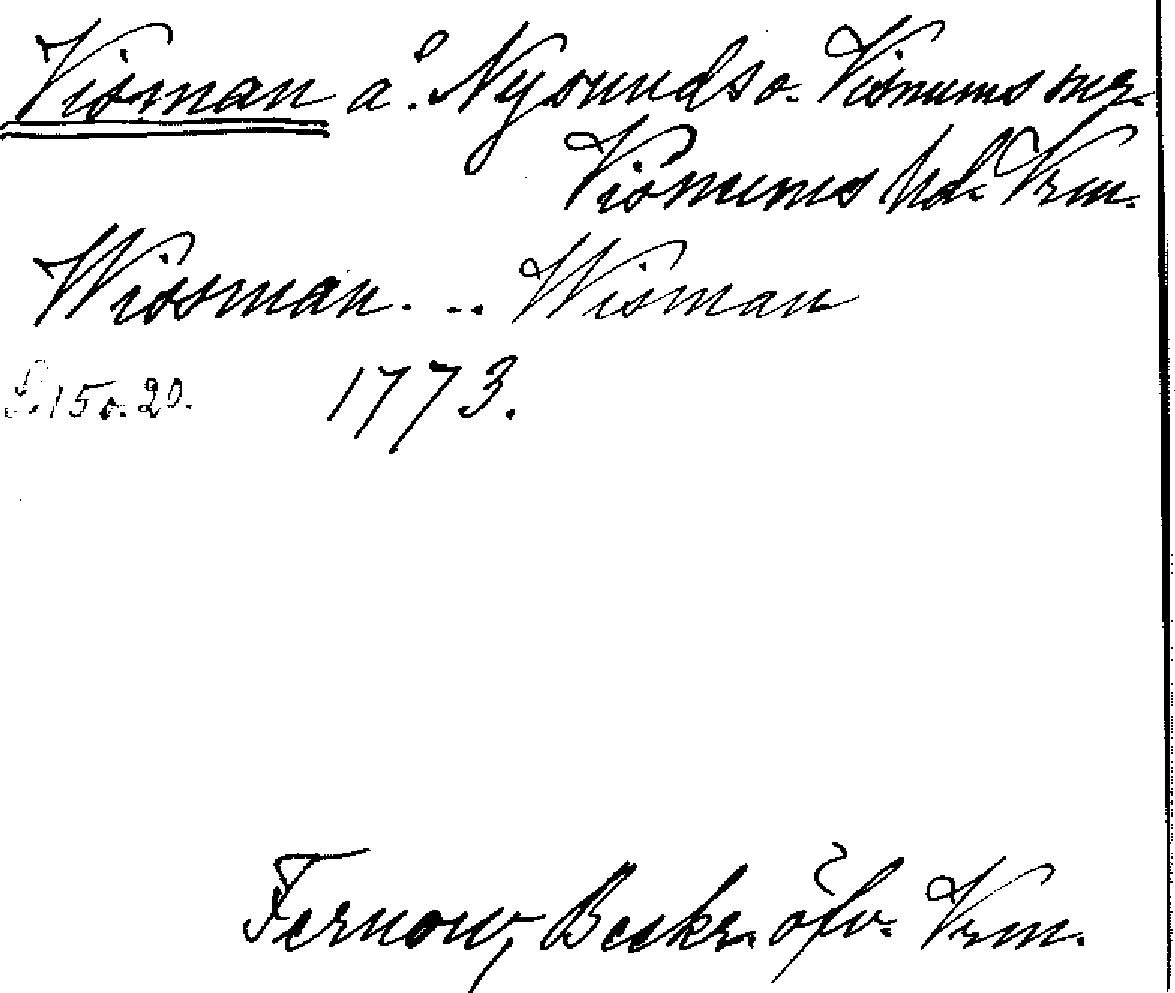 Visman å. Nysunds o. Visnums snr.
Visnums hd. Vrm.
Wissman. .. Wisman
S. 15 o. 20. 1773.
Fernow, Beskr. öfv. Vrm.